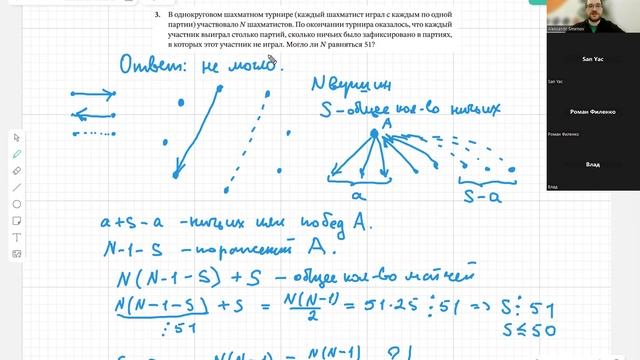 3. В однокруговом шахматном турнире (каждый шахматист играл с каждым по одной
партии) участвовало N шахматистов. По окончании турнира оказалось, что каждый
участник выиграл столько партий, сколько ничьих было зафиксировано в партиях,
в которых этот участник не играл. Могло ли N равняться 51?
Ответ: не могло.
N вершин
S - общее кол-во ничьих
A
a
S-a
a+S-a - ничьих или побед A.
N-1-S - поражений A.
N(N-1-S)+S - общее кол-во матчей
N(N-1-S) + S = N(N-1)/2 = 51·25 ⋮ 51 => S ⋮ 51
⋮ 51
S ≤ 50
N(N-1)
N(N-1)
?!
Aleksandr Smirnov
San Yac
San Yac
Роман Филенко
Роман Филенко
Влад
Влад